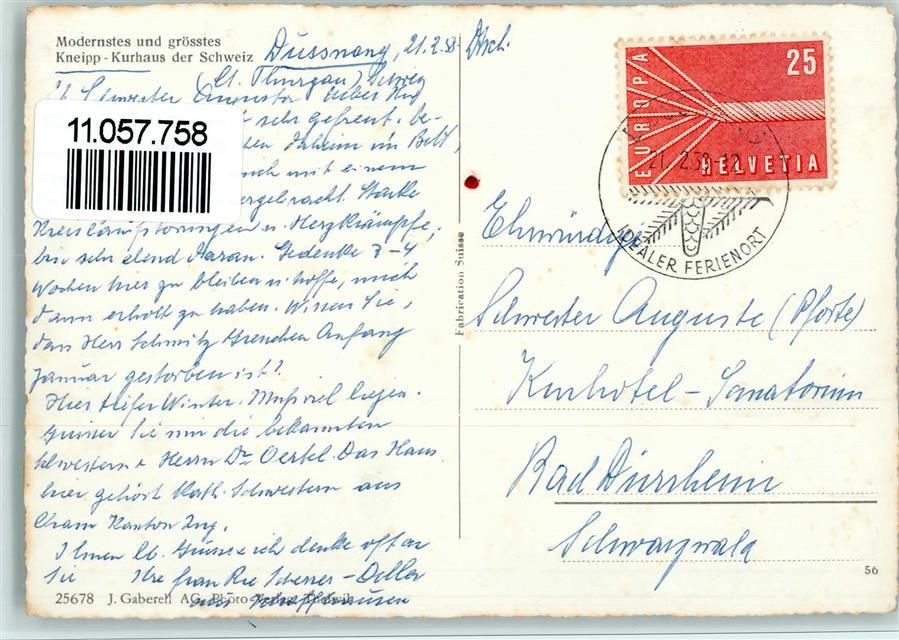 Modernstes und grösstes
Kneipp-Kurhaus der Schweiz Dussnang, 21.2.58
(Ct. Thurgau) Schweiz
Schwester
11.057.758
sehr gefreut. be-
Daheim im Bett,
mich mit einem
hergebracht. Starke
Kreislaufstörungen u. Herzkrämpfe,
bin sehr elend daran. Gedenke 3-4
Wochen hier zu bleiben u. hoffe, mich
dann erholt zu haben. Wissen Sie,
dass Herr Schmitz Grenchen Anfang
Januar gestorben ist?
Hier tiefer Winter. Muss viel liegen.
Grüssen Sie mir die bekannten
Schwestern & Herrn Dr. Oertel. Das Haus
hier gehört Kath. Schwestern aus
Cham Kanton Zug.
Ihnen lb. Grüsse & ich denke oft an
Sie Ihre Frau
Schaffhausen
25678 J. Gaberell AG, Photo-Verlag, Thalwil
Fabrication Suisse
EUROPA
25
HELVETIA
21.2.58-12
IDEALER FERIENORT
Ehrwürdige
Schwester Auguste (Pforte)
Kurhotel-Sanatorium
Bad Dürrheim
Schwarzwald
56